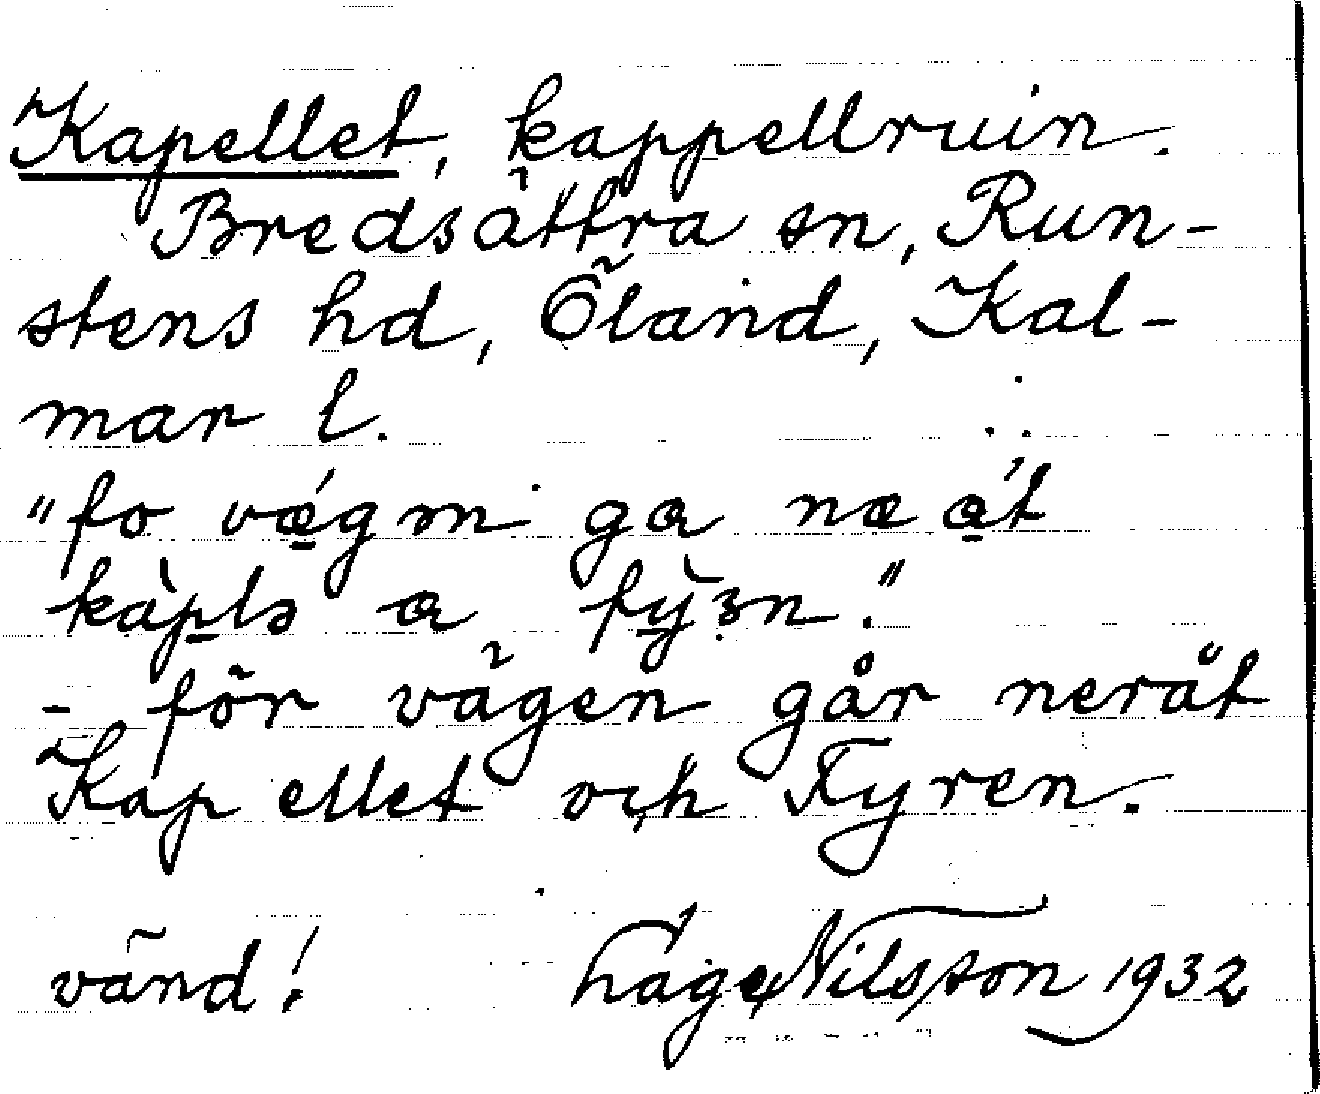 Kapellet, kappellruin.
Bredsättra sn, Run-
stens hd, Öland, Kal-
mar l.
"fo vǽgm ga næ át
kàplə a fỳɜn."
- för vägen går neråt
Kapellet och Fyren.
vänd! Håge Nilsson 1932